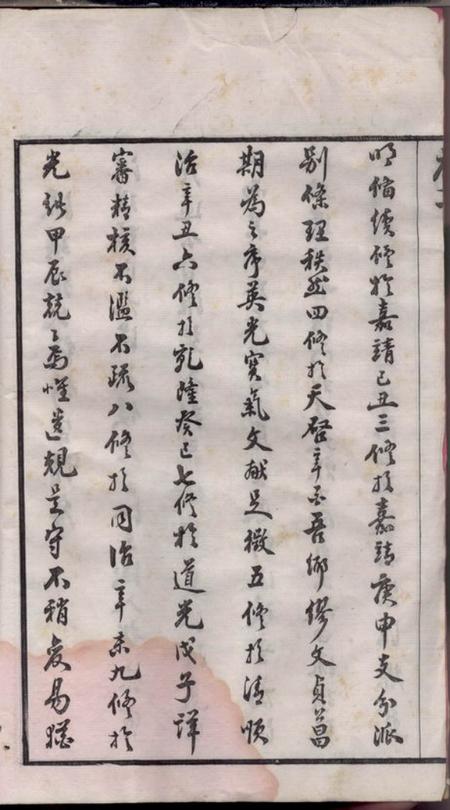 明備續修於嘉靖己丑三修於嘉靖庚申支分派
別條理秩然四修於天啓辛酉吾鄉繆文貞昌
期為之序英光寶氣文献足徵五修於清順
治辛丑六修於乾隆癸巳七修於道光戊子詳
審精核不濫不疏八修於同治辛未九修於
光緒甲辰兢兢焉惟遺規是守不稍變易